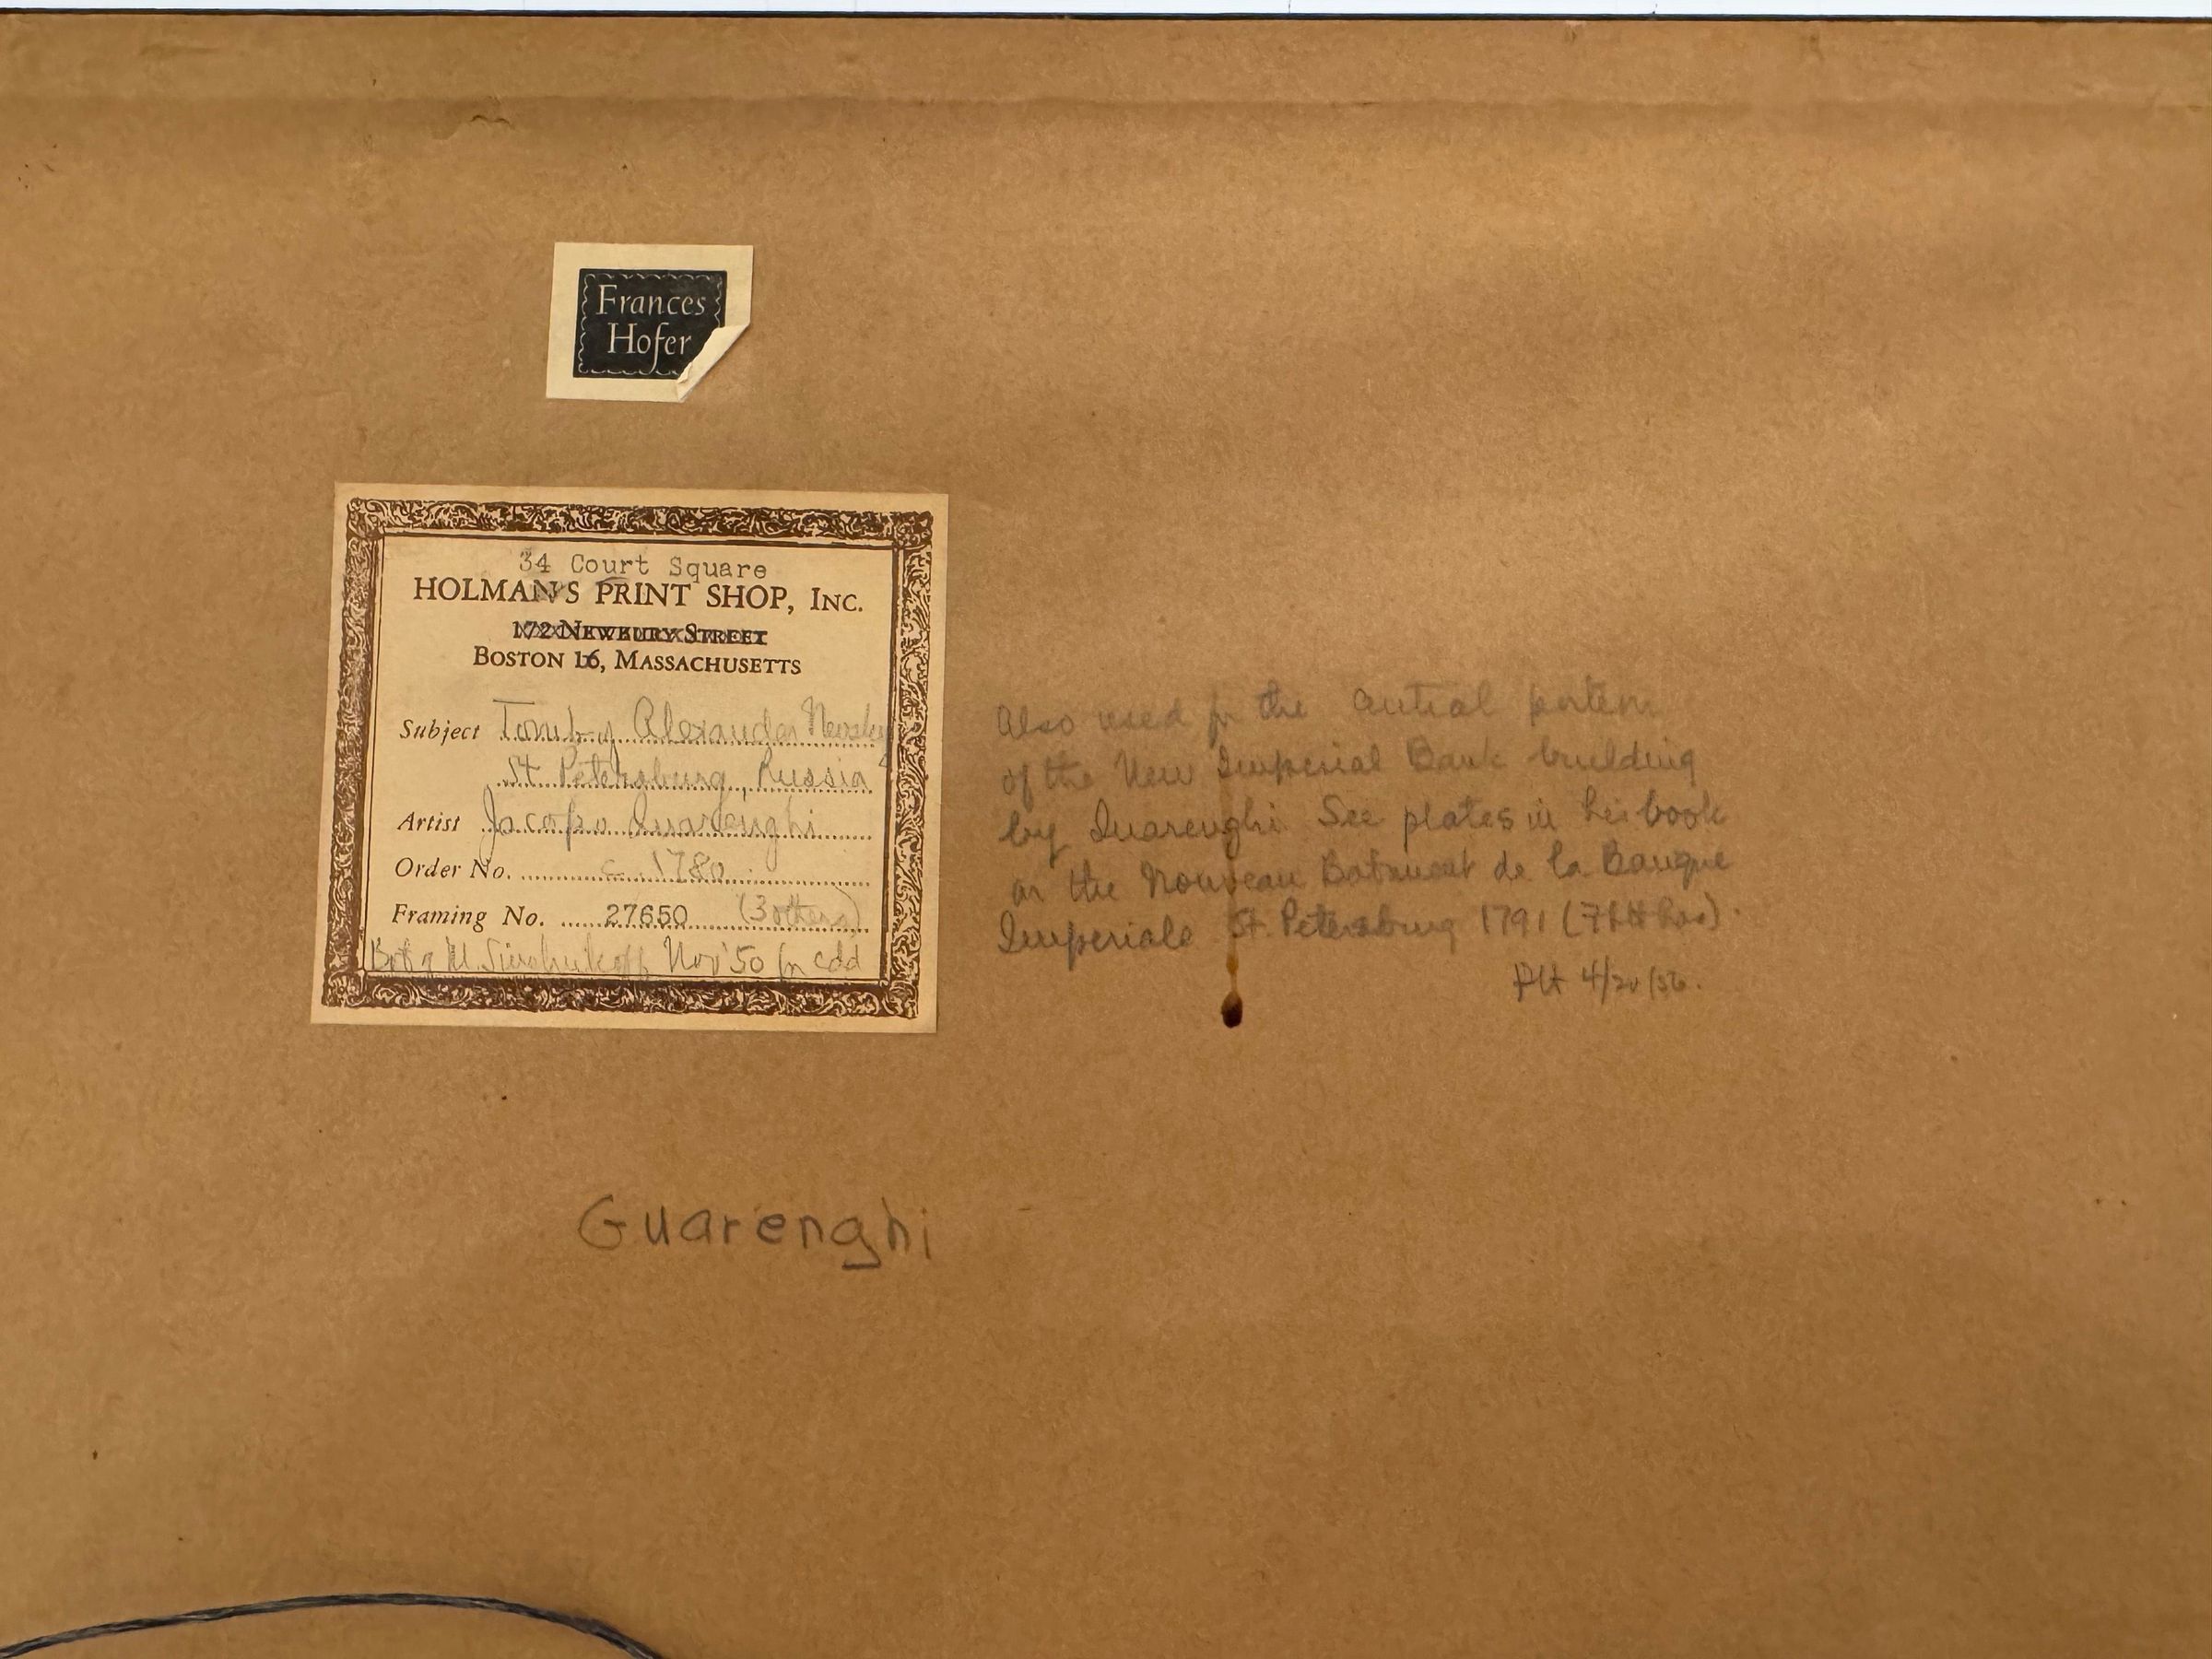 Frances
Hofer
34 Court Square
HOLMAN'S PRINT SHOP, INC.
172 NEWBURY STREET
BOSTON 16, MASSACHUSETTS
Subject Tomb of Alexander Nevsky
St Petersburg, Russia
Artist Jacopo Quarenghi
Order No. c. 1780
Framing No. 27650 (3 others)
M. Nov '50 for
Also used for the central portion
of the New Imperial Bank building
by Quarenghi. See plates in his book
on the Nouveau Batiment de la Banque
Imperiale St. Petersburg 1791 (PH has).
PH 4/20/56.
Guarenghi